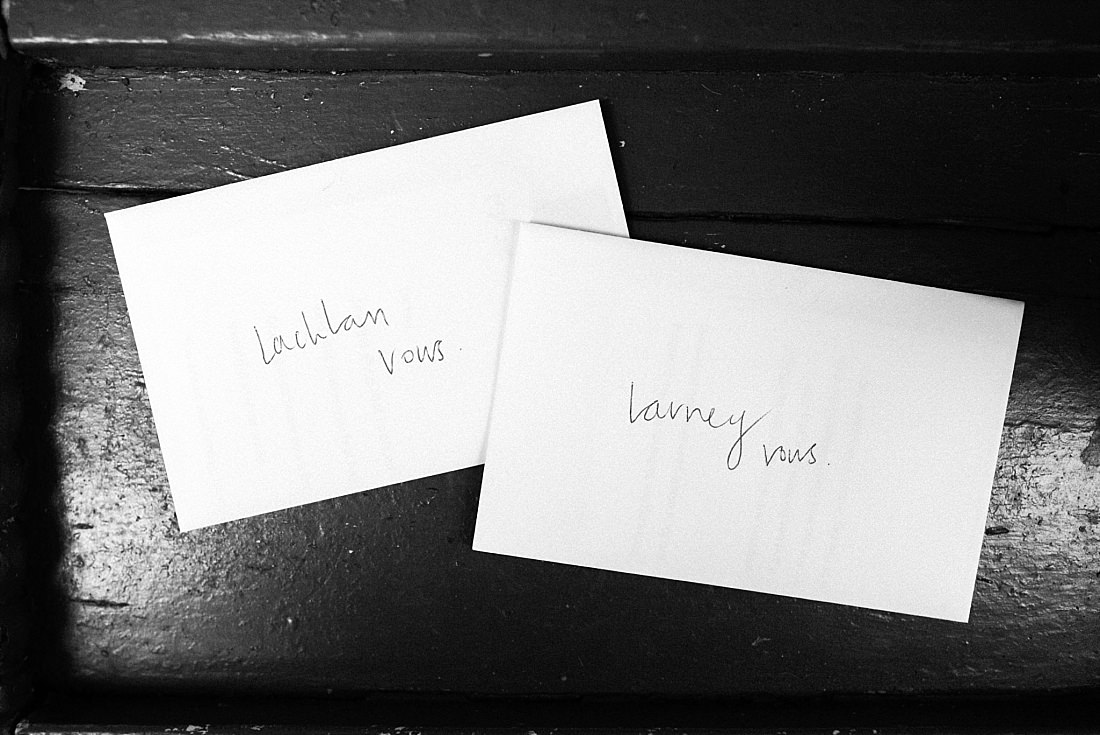 Lachlan
vows.
Larney
vows.